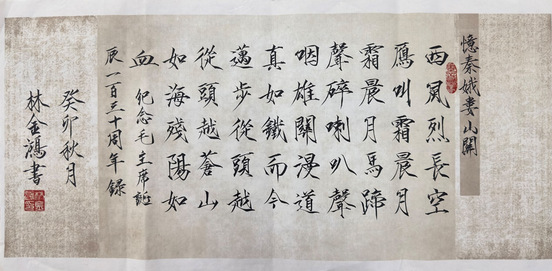 憶秦娥婁山關
西風烈長空
鴈叫霜晨月
霜晨月馬蹄
聲碎喇叭聲
咽雄關漫道
真如鐵而今
邁步從頭越
從頭越蒼山
如海殘陽如
血 紀念毛主席誕
辰一百三十周年錄
癸卯秋月
林金鴻書